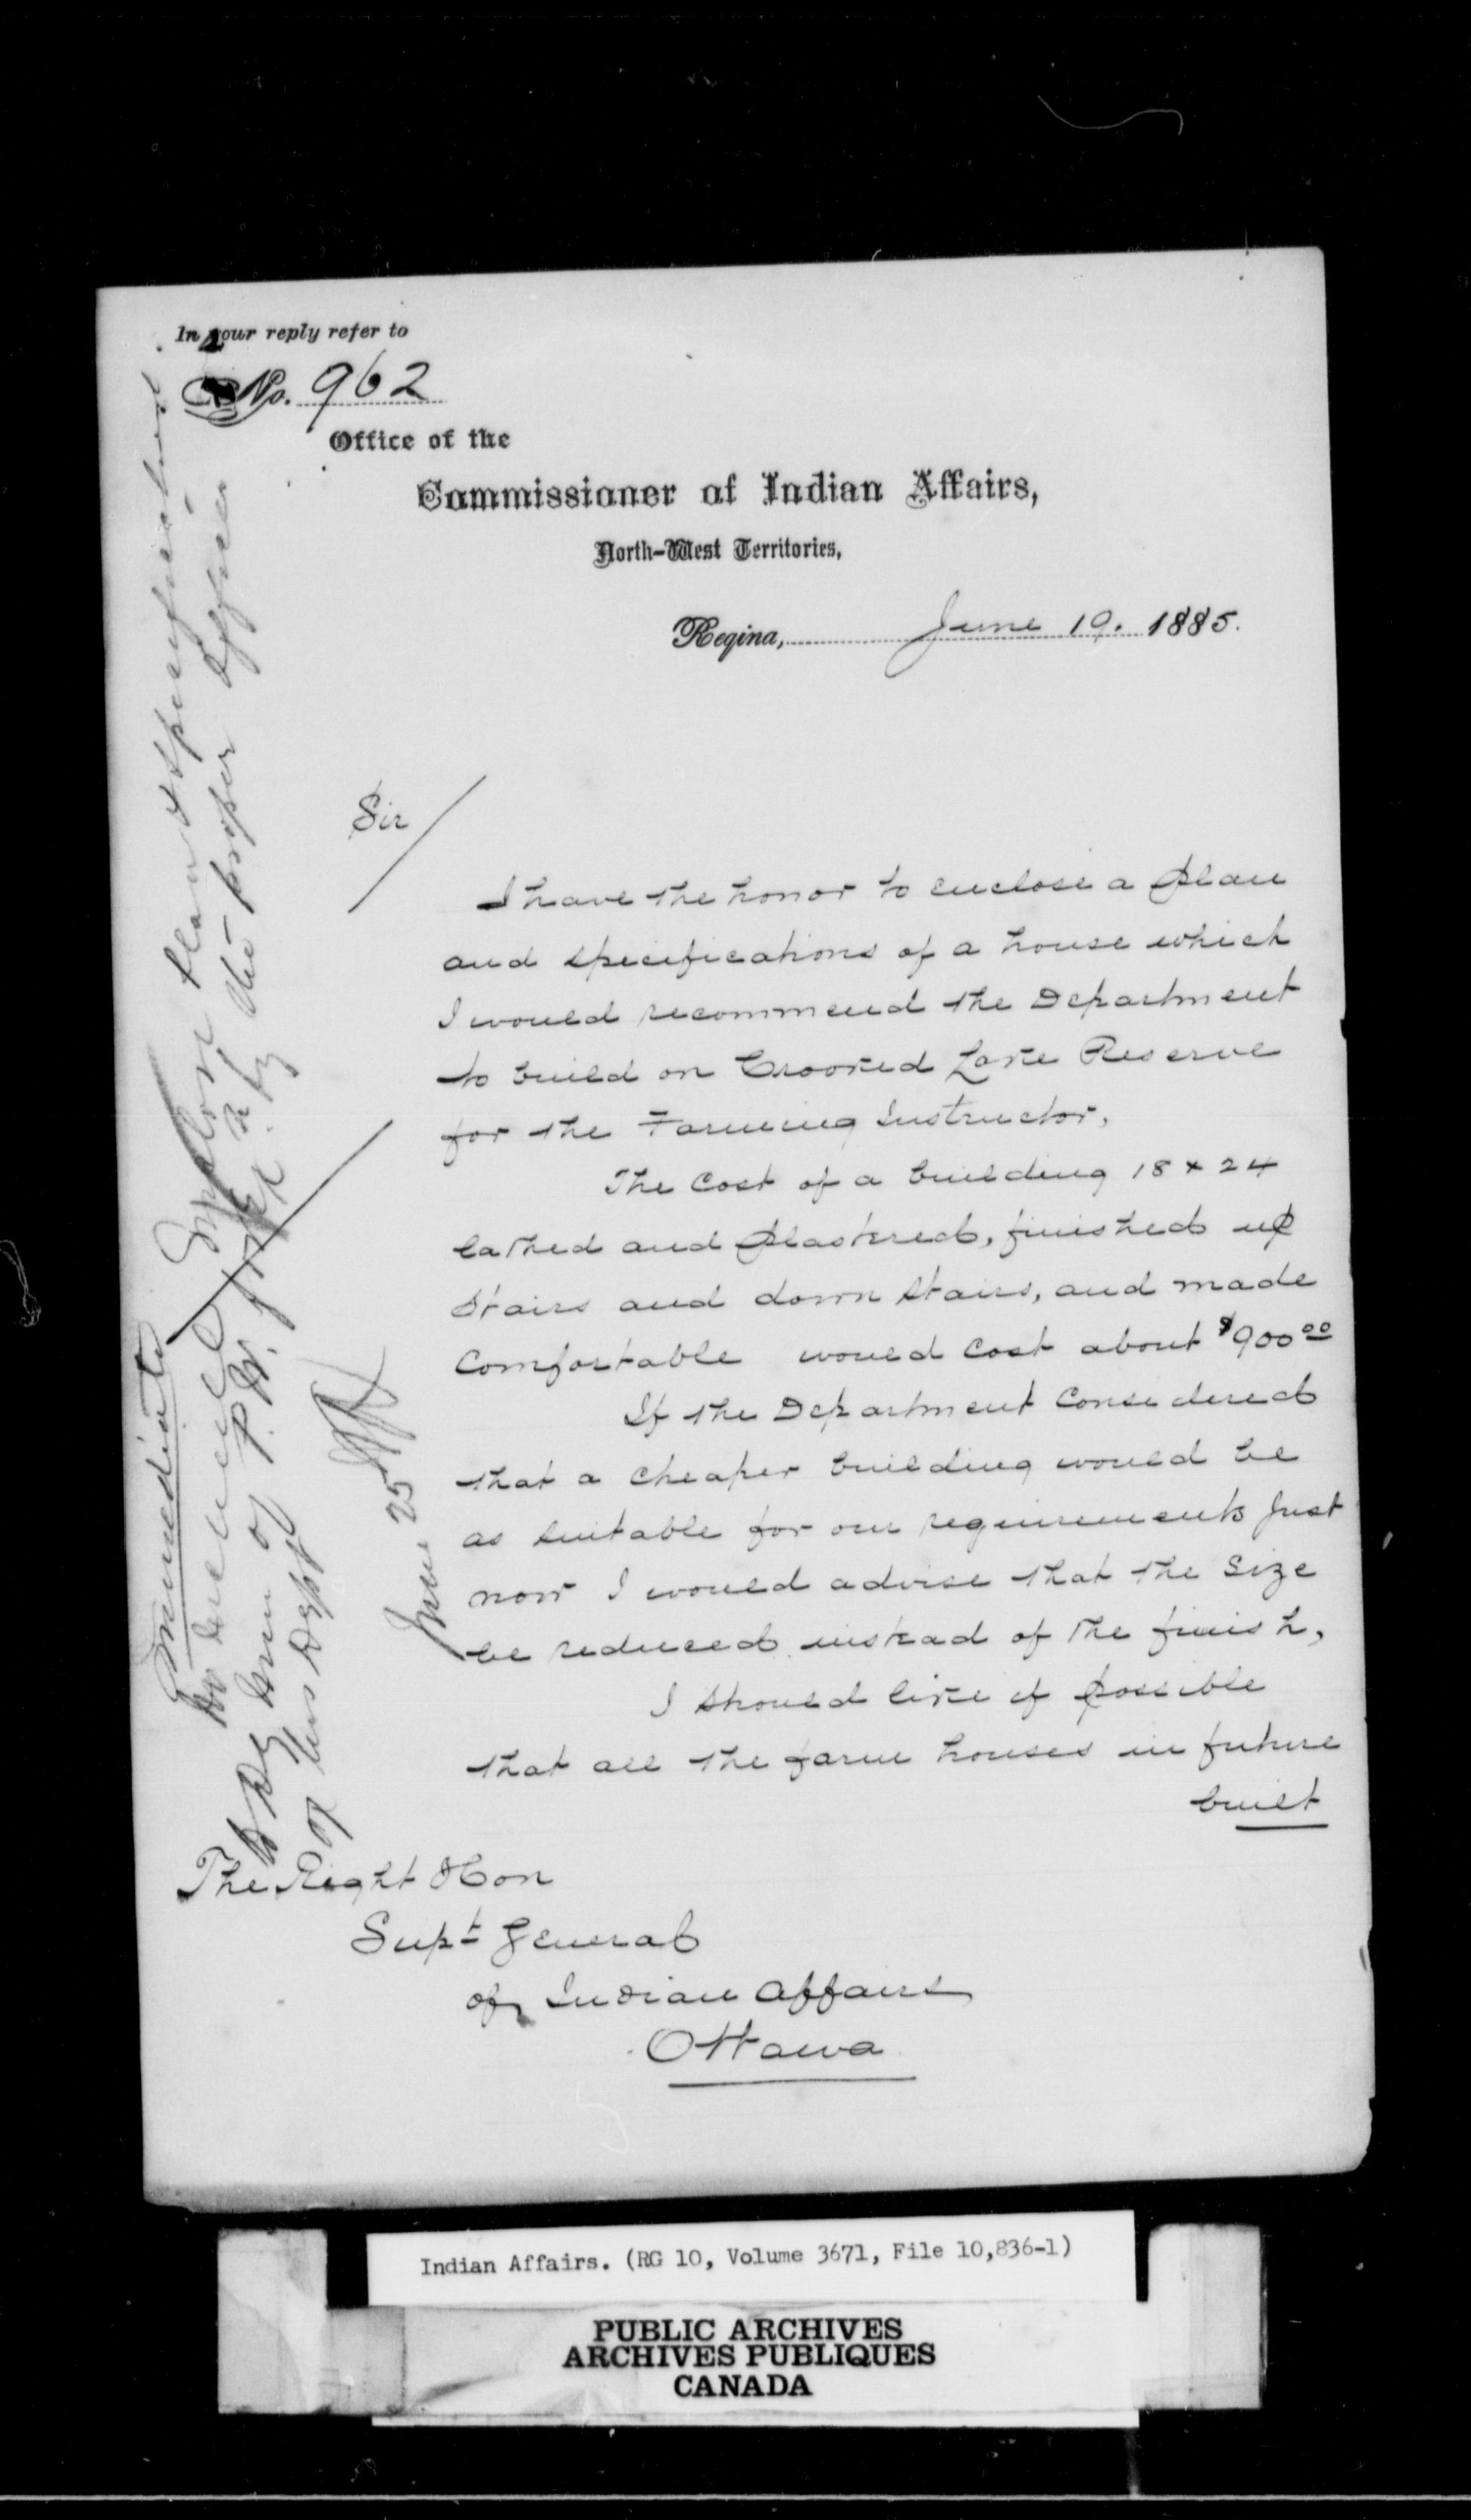 In your reply refer to
No. 962
Office of the
Commissioner of Indian Affairs,
North-West Territories,
Regina, June 19. 1885.
Sir
I have the honor to enclose a plan
and specifications of a house which
I would recommend the Department
to build on Crooked Lake Reserve
for the Farming Instructor.
The Cost of a building 18 x 24
lathed and plastered, finished up
Stairs and down stairs, and made
Comfortable would Cost about $900 00
If the Department Considered
that a cheaper building would be
as suitable for our requirements just
now I would advise that the size
be reduced instead of the finish,
I should like if possible
that all the farm houses in future
built
The Right Hon
Supt General
of Indian Affairs
Ottawa
Immediate
Enclose plan & specifications
to by the proper Officer
of P.W.
of this Dept
June 25
Indian Affairs. (RG 10, Volume 3671, File 10,836-1)
PUBLIC ARCHIVES
ARCHIVES PUBLIQUES
CANADA